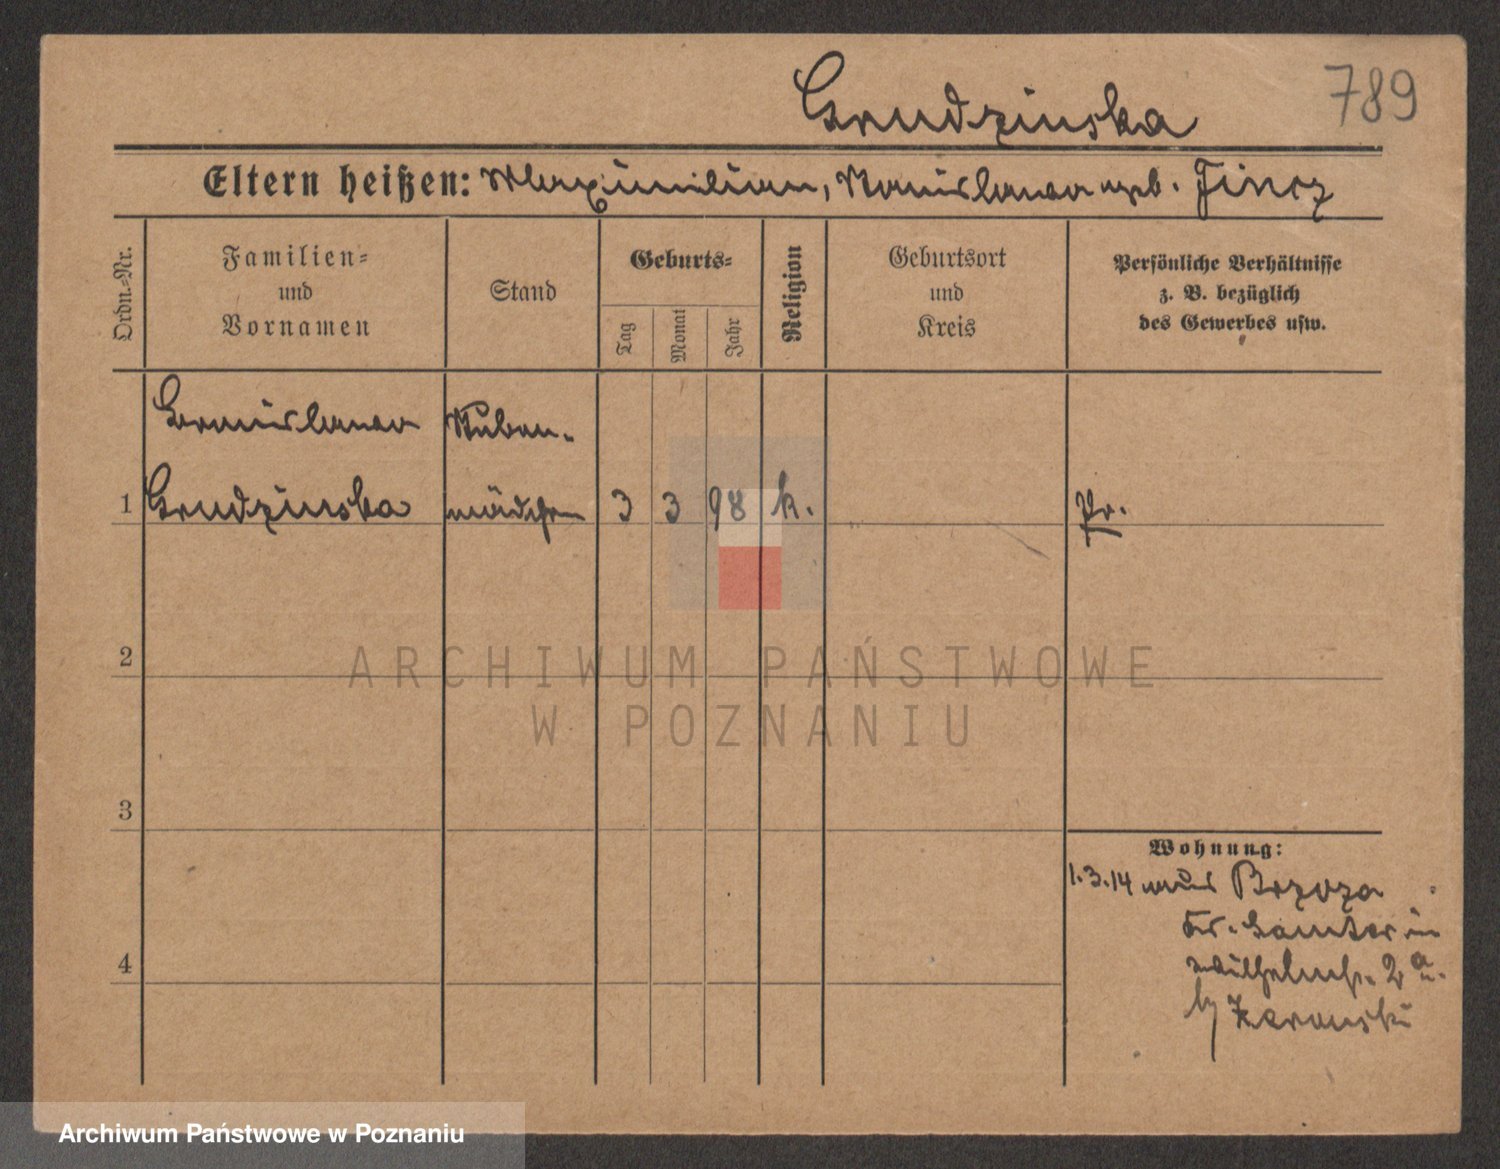 Grudzinska
789
Eltern heißen: Maximilian, Stanislawa geb. Fincz
Ordn.-Nr.
Familien-
und
Vornamen
Stand
Geburts-
Tag
Monat
Jahr
Religion
Geburtsort
und
Kreis
Persönliche Verhältnisse
z. B. bezüglich
des Gewerbes usw.
Bronislawa Stuben-
1 Grudzinska mädchen 3 3 98 k. Pr.
2
3
4
Wohnung:
1.3.14 aus Brzoza
Kr. Samter in
Wilhelmstr. 2a
b/
ARCHIWUM PAŃSTWOWE
W POZNANIU
Archiwum Państwowe w Poznaniu